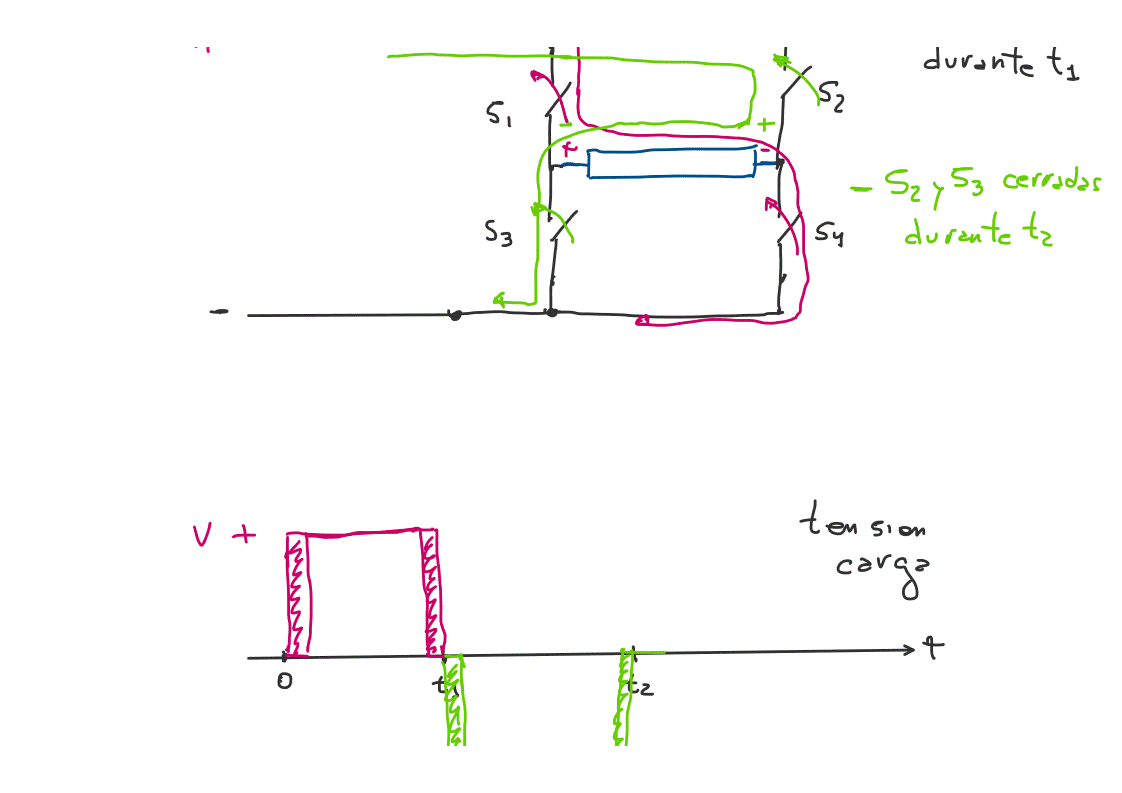 durante t1
S1
S2
-
+
+
-
- S2 y S3 cerradas
durante t2
S3
S4
-
V +
tension
carga
t
0
t1
t2